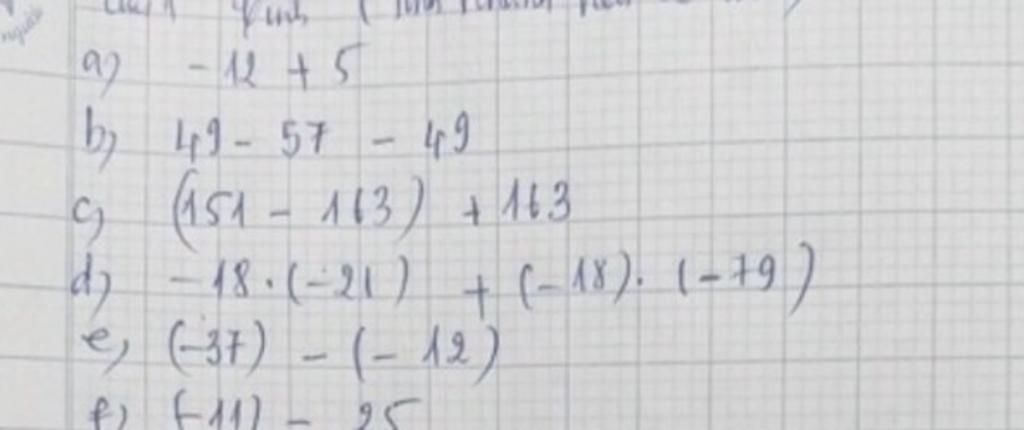 a) -12 + 5
b) 49 - 57 - 49
c) (151 - 163) + 163
d) -18.(-21) + (-18).(-79)
e) (-37) - (-12)
f) (-11) - 25